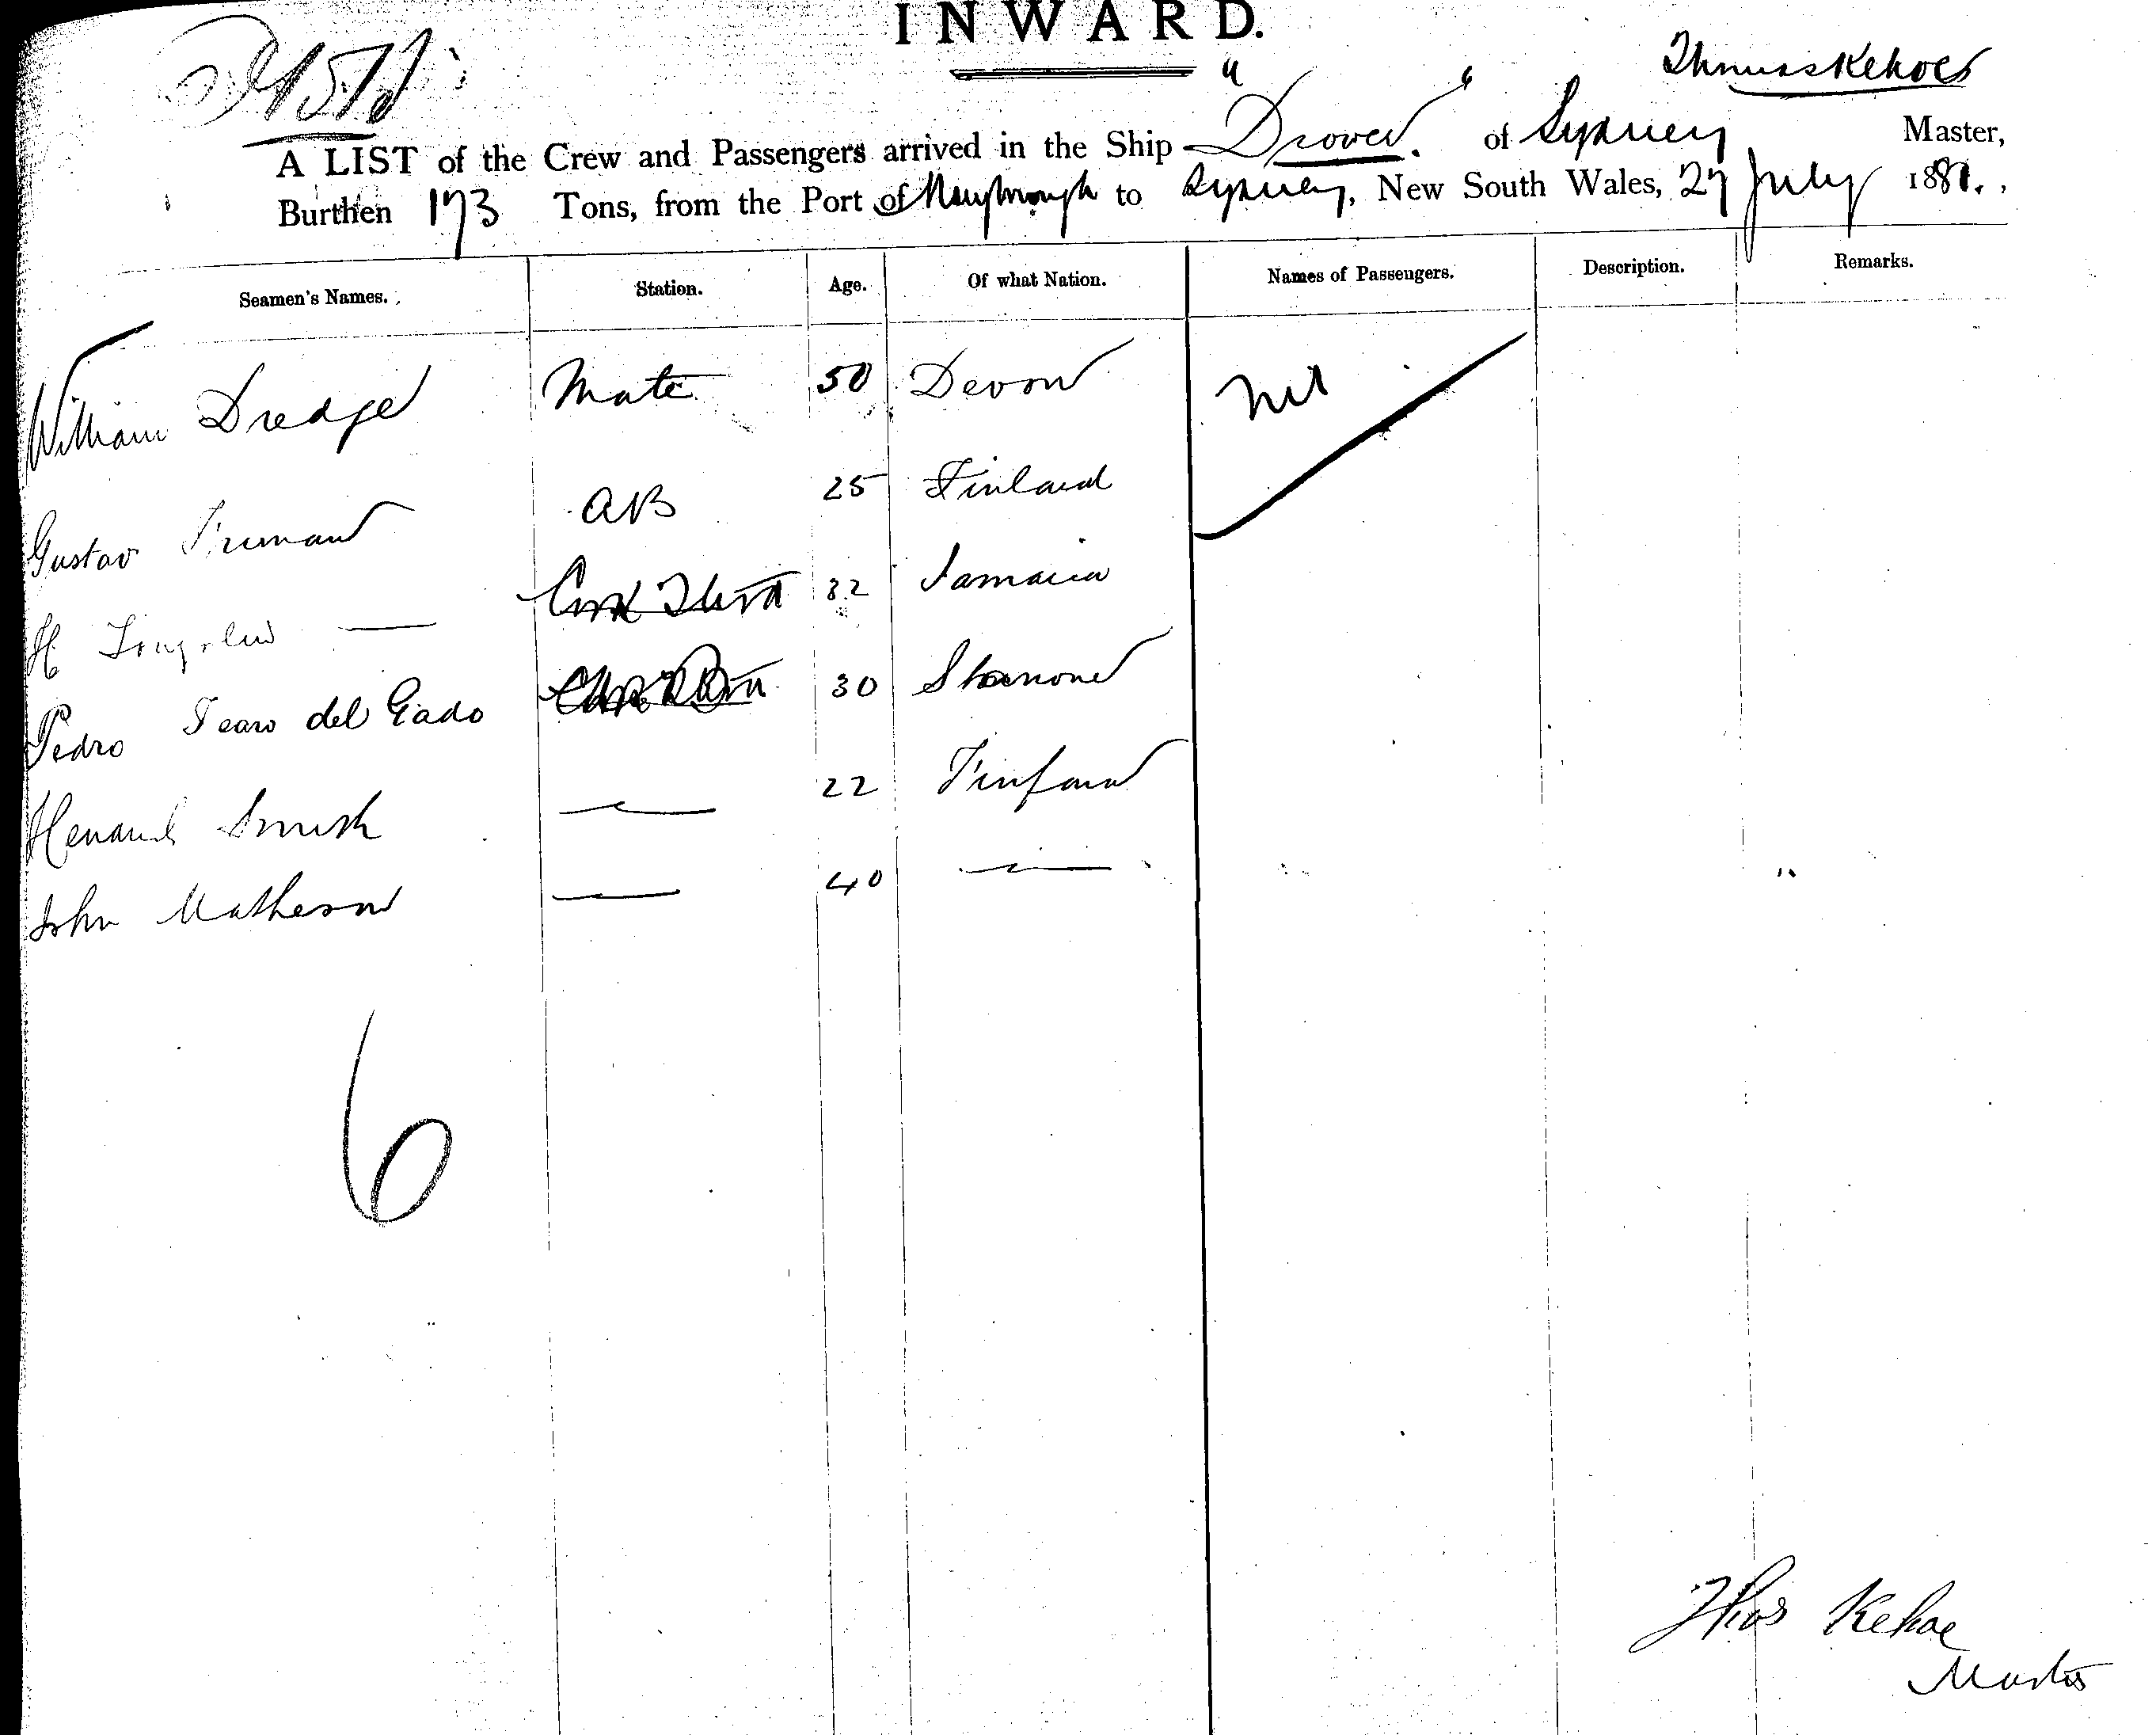 INWARD.
Thomas Kehoe
A LIST of the Crew and Passengers arrived in the Ship "Drover." of Sydney Master,
Burthen 173 Tons, from the Port of Maryborough to Sydney, New South Wales, 27 July 1881.,
Seamen's Names. Station. Age. Of what Nation. Names of Passengers. Description. Remarks.
William Dredge Mate 50 Devon Nil
Gustav AB 25 Finland
H 32 Jamaica
Pedro del Gado 30
Smith 22
John Matheson 40
6
Thos Kehoe
Master